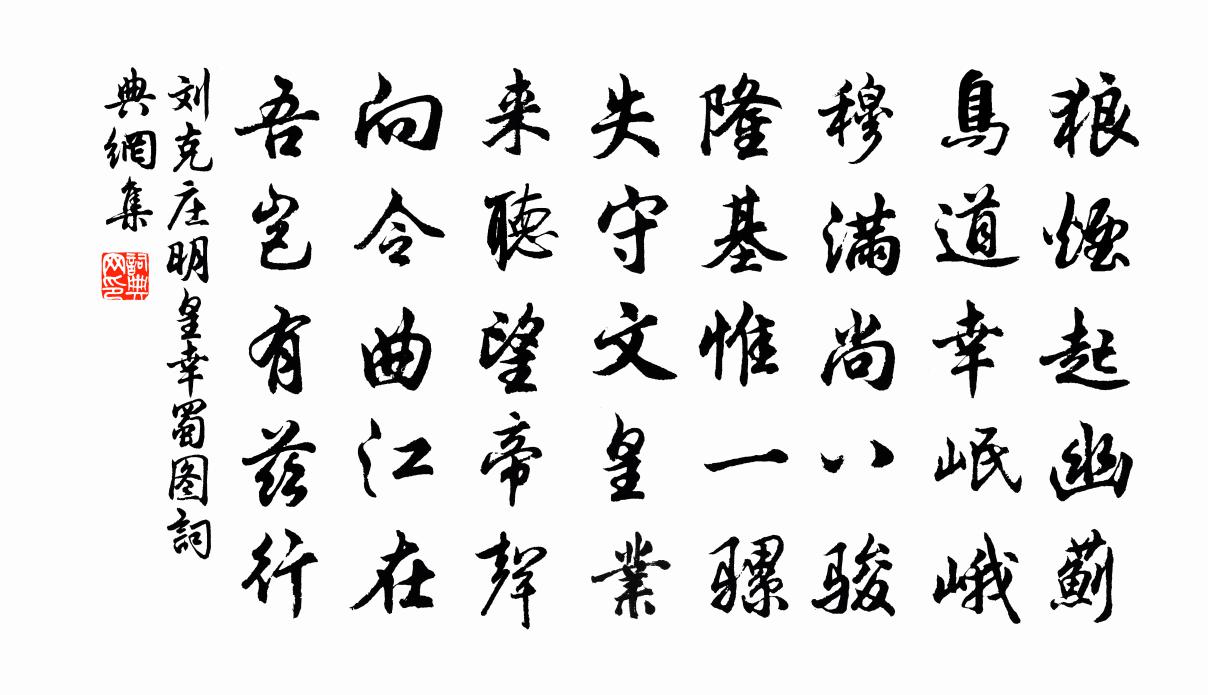 狼煙起幽薊
鳥道幸岷峨
穆滿尚八駿
隆基惟一騾
失守文皇業
来聽望帝聲
向令曲江在
吾岂有茲行
刘克庄明皇幸蜀图詞
典網集
詞典网印